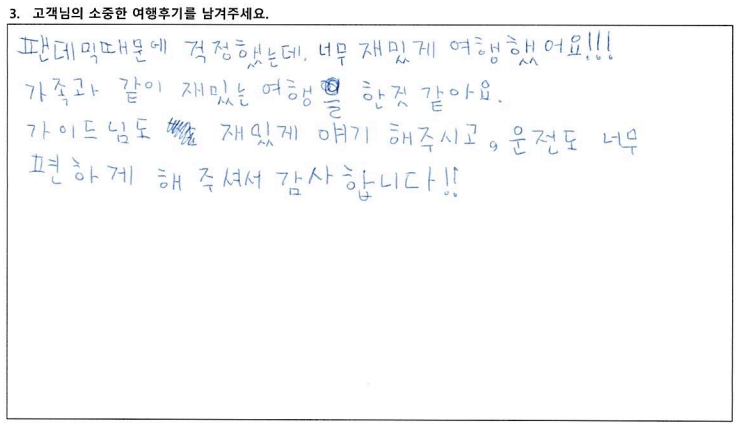 3. 고객님의 소중한 여행후기를 남겨주세요.
팬데믹때문에 걱정했는데, 너무 재밌게 여행했어요!!!
가족과 같이 재밌는 여행을 한것 같아요.
가이드님도 재밌게 얘기 해주시고, 운전도 너무
편하게 해 주셔서 감사합니다!!